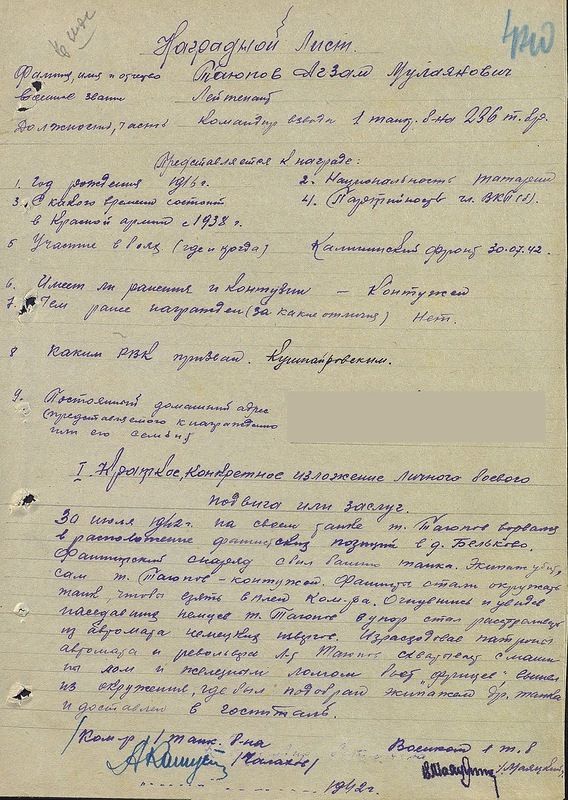 4100
Наградной Лист.
Фамилия, имя и отчество Таюпов Агзам Мулаянович
Военное звание Лейтенант
Должность, часть Командир взвода 1 танк. б-на 236 т. бр.
Представляется к награде:
1. Год рождения 1916 г. 2. Национальность татарин
3. С какого времени состоит 4. Партийность чл. ВКП(б).
в Красной армии с 1938 г.
5 Участие в боях (где и когда) Калининский фронт 30.07.42.
6. Имеет ли ранения и контузии — Контужен
7. Чем ранее награжден (за какие отличия) Нет.
8 Каким РВК призван.
9. Постоянный домашний адрес
(представляемого к награждению
или его семьи)
I. Краткое, конкретное изложение личного боевого
подвига или заслуг.
30 июля 1942 г. на своем танке т. Таюпов ворвался
в расположение фашистских позиций в д. Бельково.
Фашистский снаряд сбил башню танка. Экипаж убит,
сам т. Таюпов - контужен. Фашисты стали окружать
танк, чтобы взять в плен Ком-ра. Очнувшись и увидев
наседавших немцев т. Таюпов в упор стал расстреливать
из автомата немецких
Израсходовав патроны
автомата и револьвера л-т Таюпов схватывает с машины
лом и железным ломом бьет „фрицев“, вышел
из окружения, где был подобран экипажем др. танка
и доставлен в госпиталь.
/Ком-р 1 танк. б-на Военком 1 т. б
1942 г.